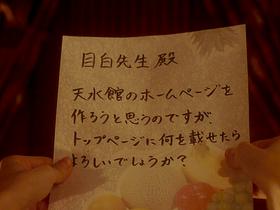 目白先生殿
天水館のホームページを
作ろうと思うのですが
トップページに何を載せたら
よろしいでしょうか?